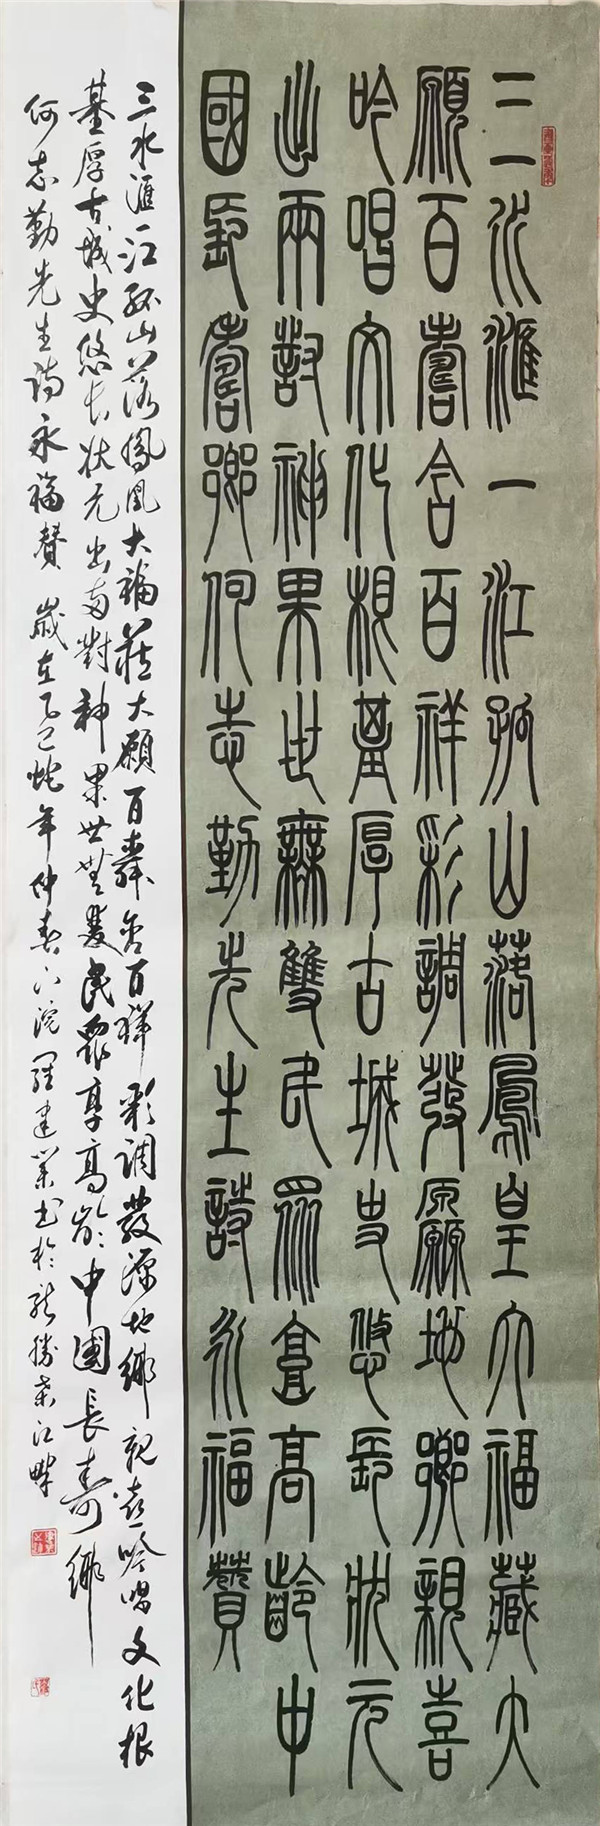 三水滙一江孤山落鳳皇大福藏大
願百壽含百祥彩調發源地鄉親喜
吟唱文化根基厚古城史悠長狀元
出兩對神果世無雙民眾享高齡中
國長壽鄉何志勤先生詩永福贊
三水滙一江孤山落鳳凰大福藏大願百壽含百祥彩調發源地鄉親喜吟唱文化根
基厚古城史悠長狀元出两對神果世無雙民眾享高齡中國長壽鄉
何志勤先生詩永福贊 歲在乙巳蛇年仲春下浣羅建業書於龍勝桑江畔